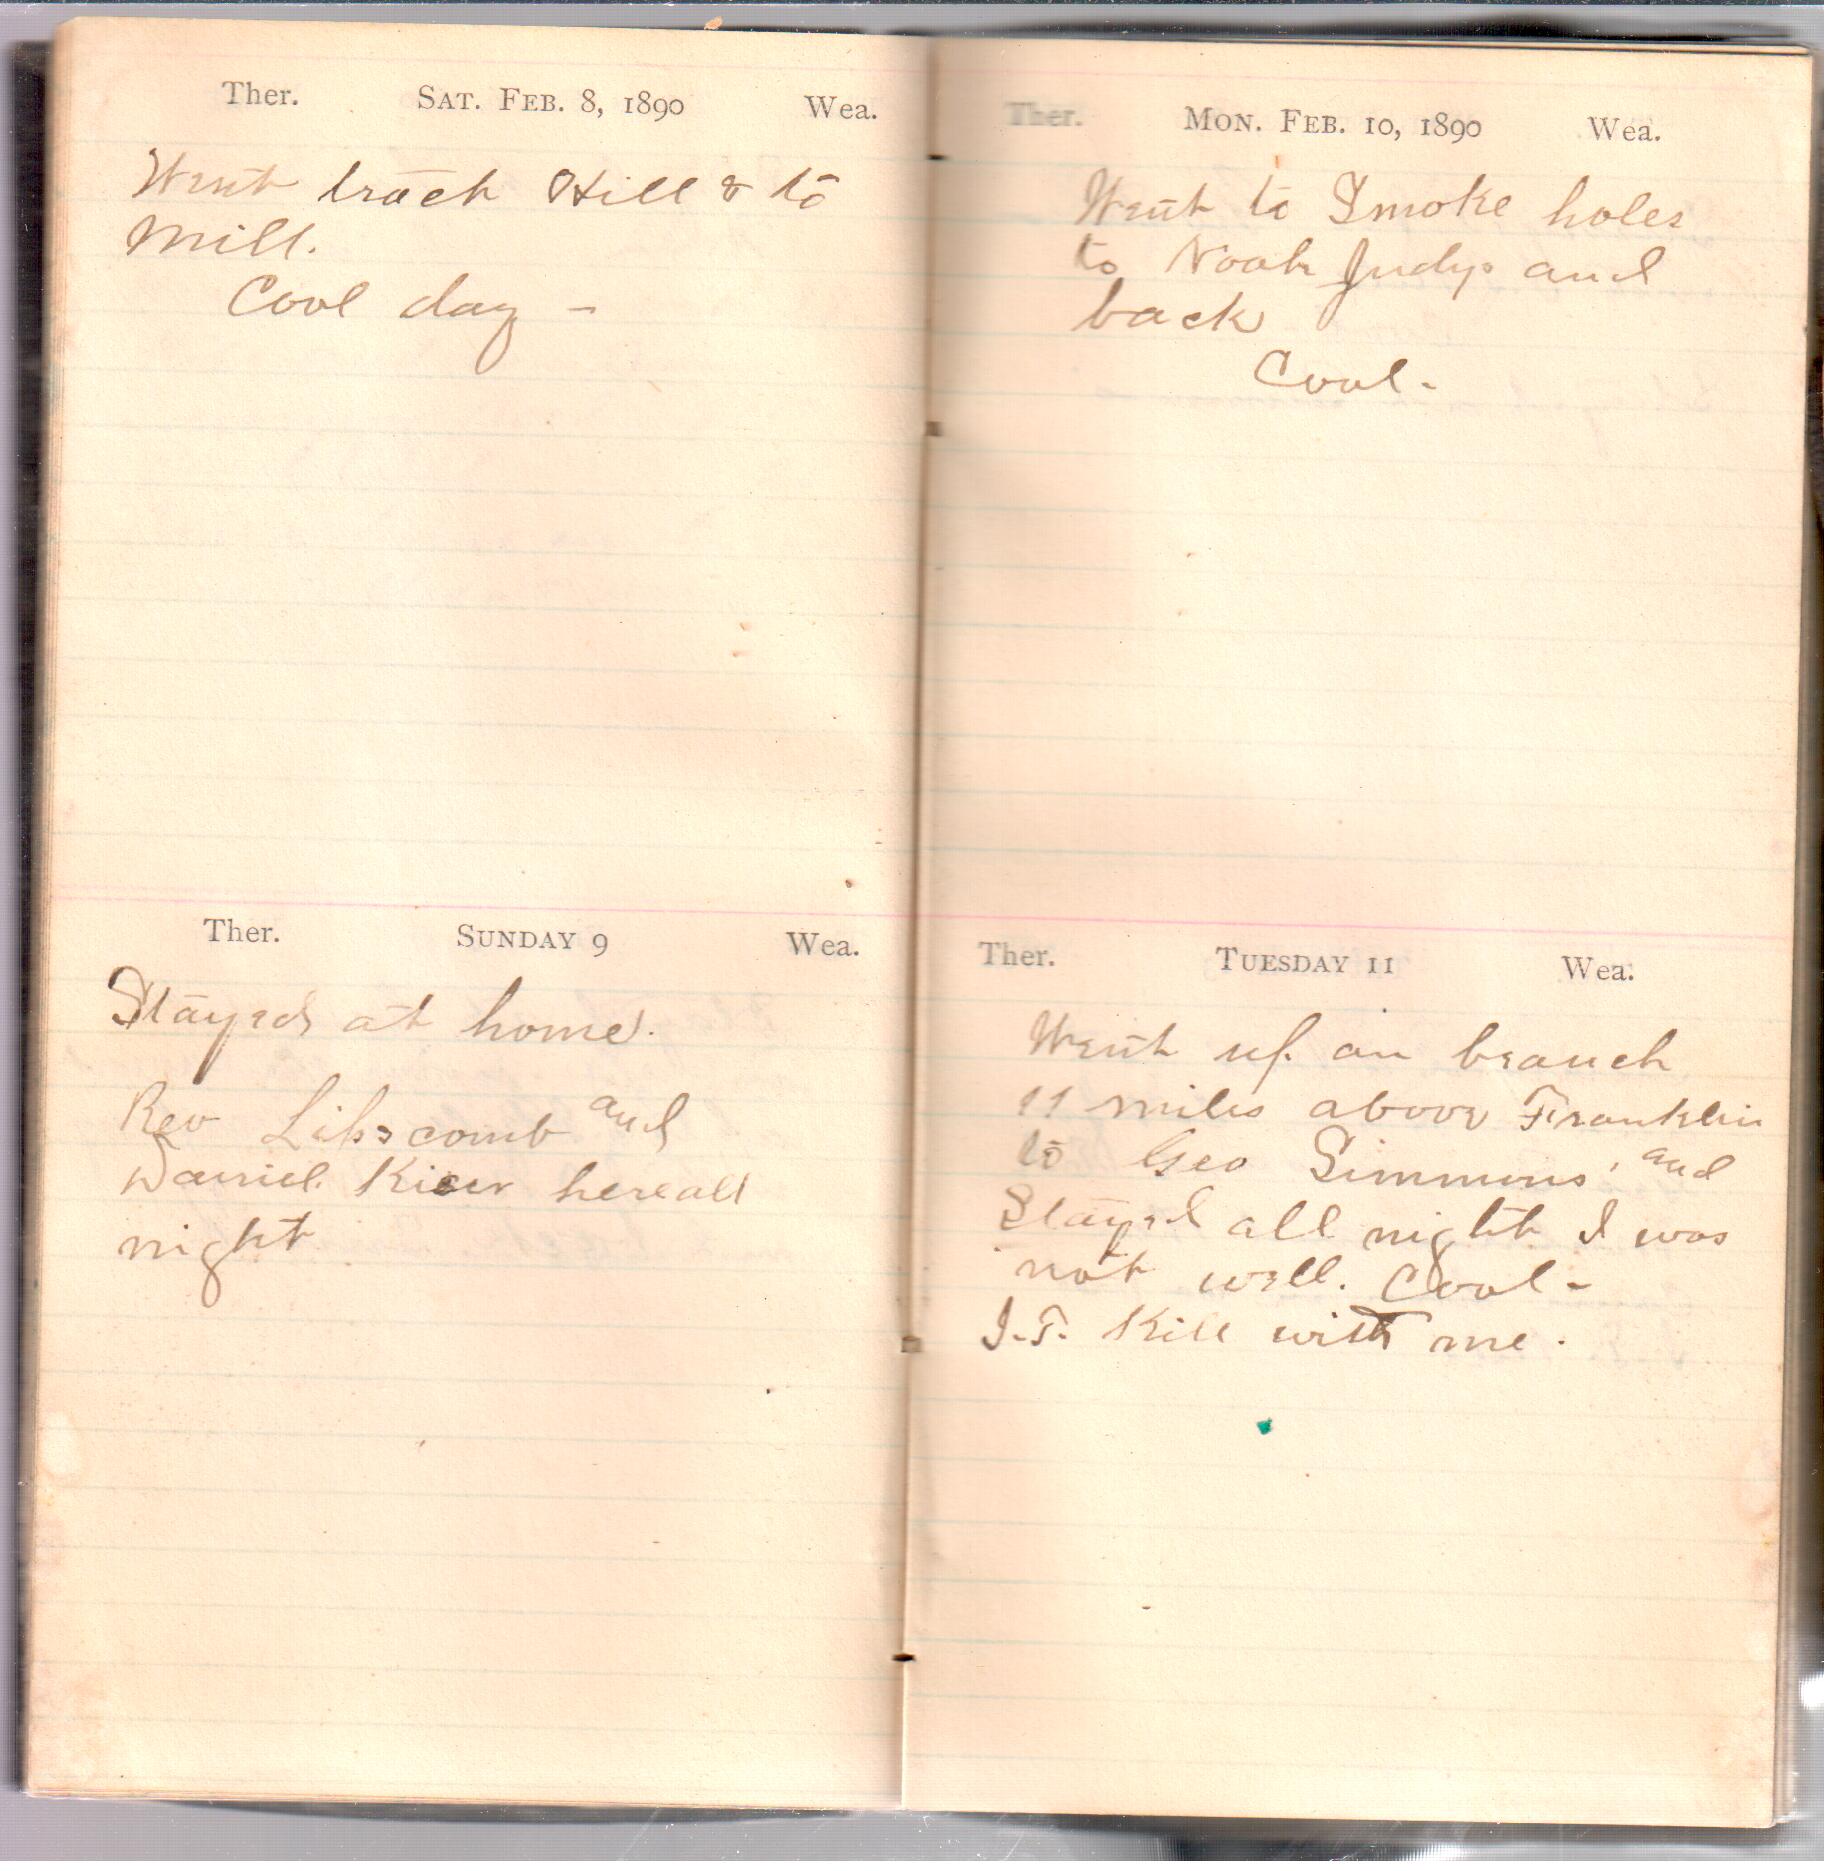 Ther. SAT. FEB. 8, 1890 Wea.
Went back Hill & to
Mill.
Cool day -
Ther. SUNDAY 9 Wea.
Stayed at home.
Rev Libscomb and
Daniel Kiser here all
night
Ther. MON. FEB. 10, 1890 Wea.
Went to Smoke holes
to Noah Judys and
back
Cool -
Ther. TUESDAY 11 Wea.
Went up an branch
11 miles above Franklin
to Geo Simmons' and
Stayed all night I was
not well. Cool -
J.T. Kile with me.